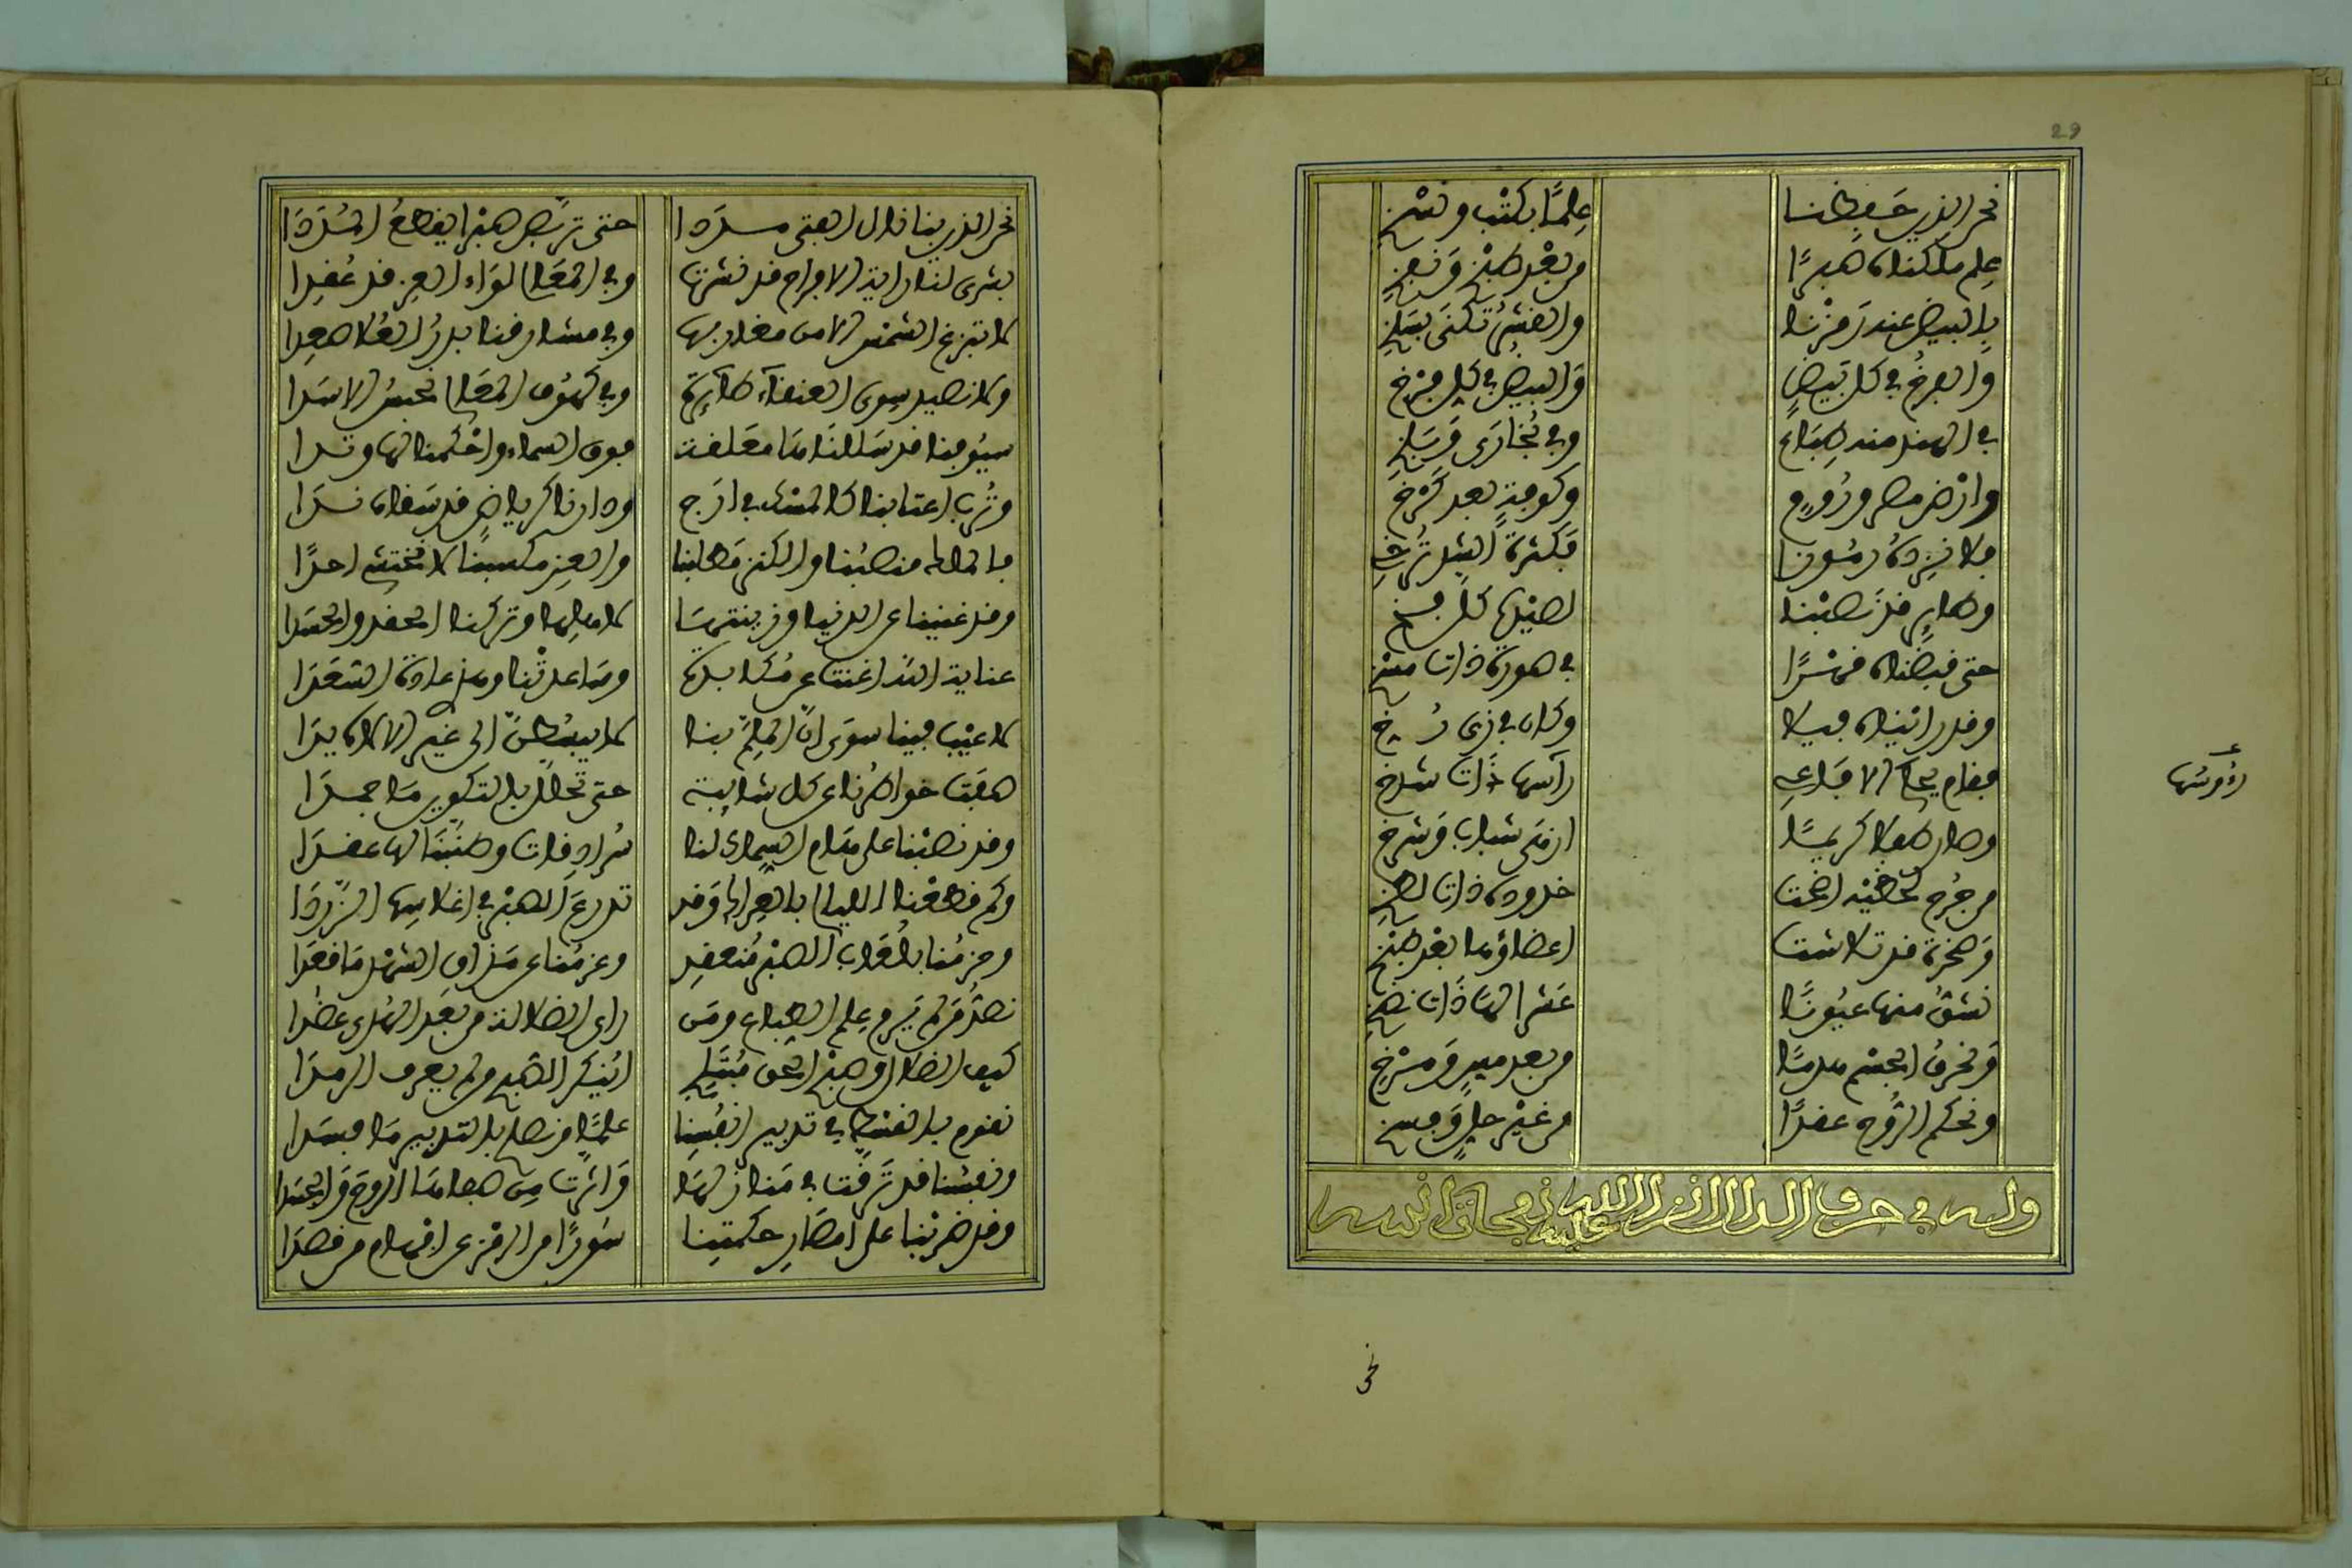 29
نحن الذين حفظنا علمًا بكتب ونسخ
علم ملكناه طبرًا من بعد طبخ ونفخ
بالبيض عند رمزنا والقشر تكنى بسلخ
والفرخ في كل بيض والبيض في كل فرخ
في الهند منه طباع وفي بخارى وبلخ
وارض مصر وروم وكوفة بعد كرخ
فلا نزده رموزا فكثرة الشد ترخ
وطاير قد نصبنا لصيدها كل فخ
حتى قبضناه قسرًا في صورة ذات مسخ
وقد راينناه فيلا وكان في زى رخ
فقام يحكى الافاعى رأسها ذات شدخ
رؤوسها
وصار طفلا كريمًا ازمى شباب وشرخ
من جرح لحظيه اضحت خدوده ذات لطخ
وصخرة قد تلاشت اعضاؤها بعد طبخ
نشق منها عيونًا عشرا لها ذات نضخ
ونخرق الجسم منا من بعد ميم ومرخ
ونحكم الروح عقدًا من غير حل وفسخ
وله في حرف الدال انزل الله عليه نفحات انسه
نحن
نحن الذين بنا نال الفتى مددا حتى تربص طبرا يقطع المددا
بشرى لنا راية الافراح قد نشرت وفي المعالى لواء العز قد عقدا
لا تبزغ الشمس الا من مغاربها وفي مشارقنا بدر العلا صعدا
ولا نصيد سوى العنقاء طايرة وفي كهوف المعالى نحبس الاسدا
سيوفنا قد سللناها معلقة فوق السماء واحكمنا لها وتدا
وترب اعتابنا كالمسك في ارج ودارنا كرياض قد سقاه ندا
فالمال منصبنا والكنز مطلبنا والعز مكسبنا لا نختشى احدًا
وقد غنينا عن الدنيا وزينتها لاهلها وتركنا الحقد والحسدا
عناية الله اغنت عن مكابدة وساعدتنا ومن عاداه الشعدا
لا عيب فينا سوى ان الملم بنا لا يبسطن الى غير الاله يدا
صفت خواطرنا عن كل شايبة حتى تحلل بالتكوير ما جمدا
وقد نصبنا على هام السماك لنا سرادقات وطنبنا لها عمدا
وكم قطعنا الليالى بالعرا وقد تدرع الصبر في اغلاسها الزردا
وحزمنا بلعاب الصبر منعقد وعزمنا عن مذاق الشهد ما قعدا
نصد من لم يرم علم الطباع ومن راى الضلالة من بعد الهدى عضدا
كيف الضلال وصبح الحق مبتلج اينكر الشهب من لم يعرف الرمدا
نقوم بالقسط في تدبير انفسنا علمًا ونصلح بالتدبير ما فسدا
ونفسنا قد ترقت في منازلها واثرت من صفاها الروح والجسدا
وقد ضربنا على امصار حكمتنا سورًا من الرمز عن افهام من قصدا